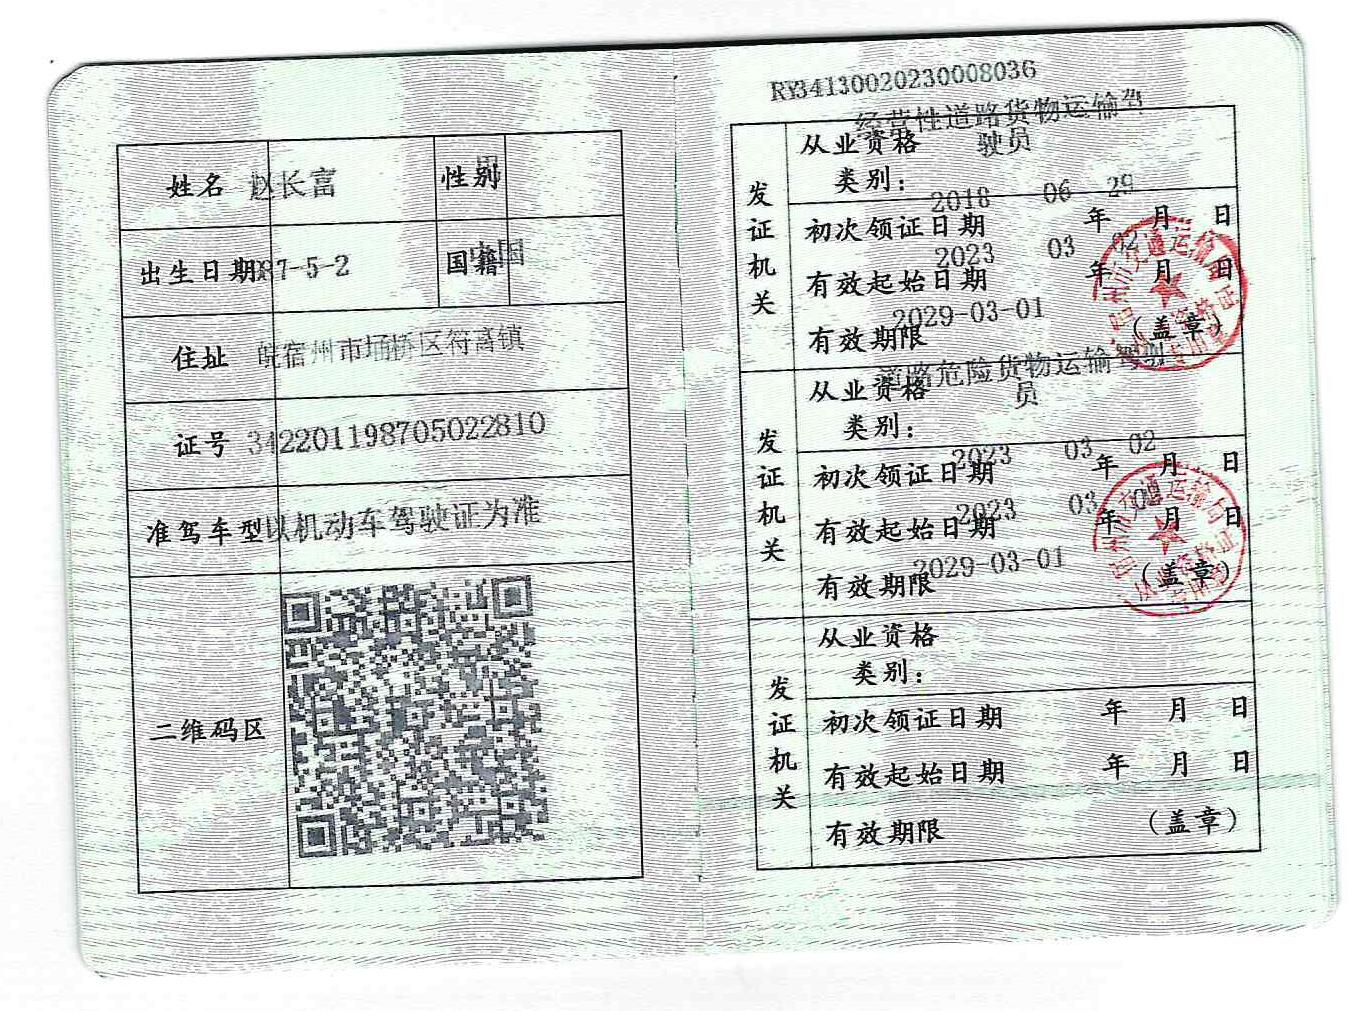 姓名 赵长富 性别 男
出生日期 87-5-2 国籍 中国
住址 皖宿州市埇桥区符离镇
证号 342201198705022810
准驾车型 以机动车驾驶证为准
二维码区
RY34130020230008036
经营性道路货物运输驾
驶员
发证机关
从业资格
类别：
2018 06 29
初次领证日期 年 月 日
2023 03 02
有效起始日期 年 月 日
2029-03-01
有效期限 （盖章）
宿州市交通运输局
道路危险货物运输驾驶
员
发证机关
从业资格
类别：
2023 03 02
初次领证日期 年 月 日
2023 03 02
有效起始日期 年 月 日
2029-03-01
有效期限 （盖章）
宿州市交通运输局
从业资格证
专用章
发证机关
从业资格
类别：
初次领证日期 年 月 日
有效起始日期 年 月 日
有效期限 （盖章）